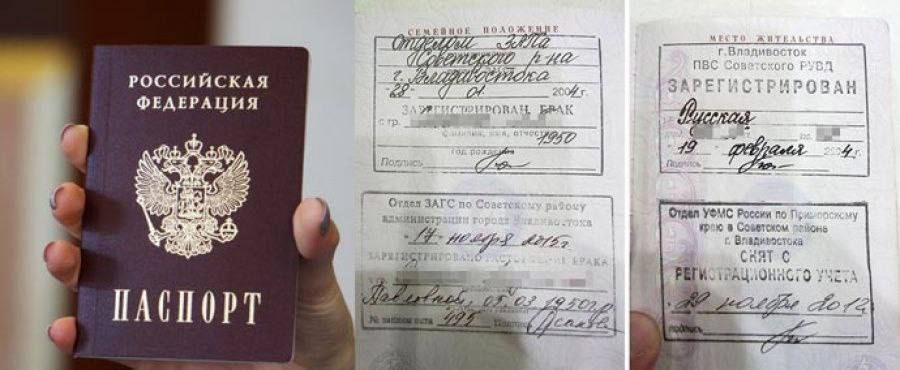 РОССИЙСКАЯ
ФЕДЕРАЦИЯ
ПАСПОРТ
СЕМЕЙНОЕ ПОЛОЖЕНИЕ
Отделом ЗАГСа
Советского р-на
г. Владивостока
28 01 2004 г.
ЗАРЕГИСТРИРОВАН БРАК
с гр.
фамилия, имя, отчество
1950
год рождения
Подпись
Отдел ЗАГС по Советскому району
администрации города Владивостока
17 ноября 2015г.
ЗАРЕГИСТРИРОВАНО РАСТОРЖЕНИЕ БРАКА
Павловной, 05.03.1950г.
№ записи акта 495 Подпись
МЕСТО ЖИТЕЛЬСТВА
г.Владивосток
ПВС Советского РУВД
ЗАРЕГИСТРИРОВАН
Русская
19 февраля 2004 г.
Подпись
Отдел УФМС России по Приморскому
краю в Советском районе
г. Владивостока
СНЯТ С
РЕГИСТРАЦИОННОГО УЧЕТА
29 ноября 2012
подпись